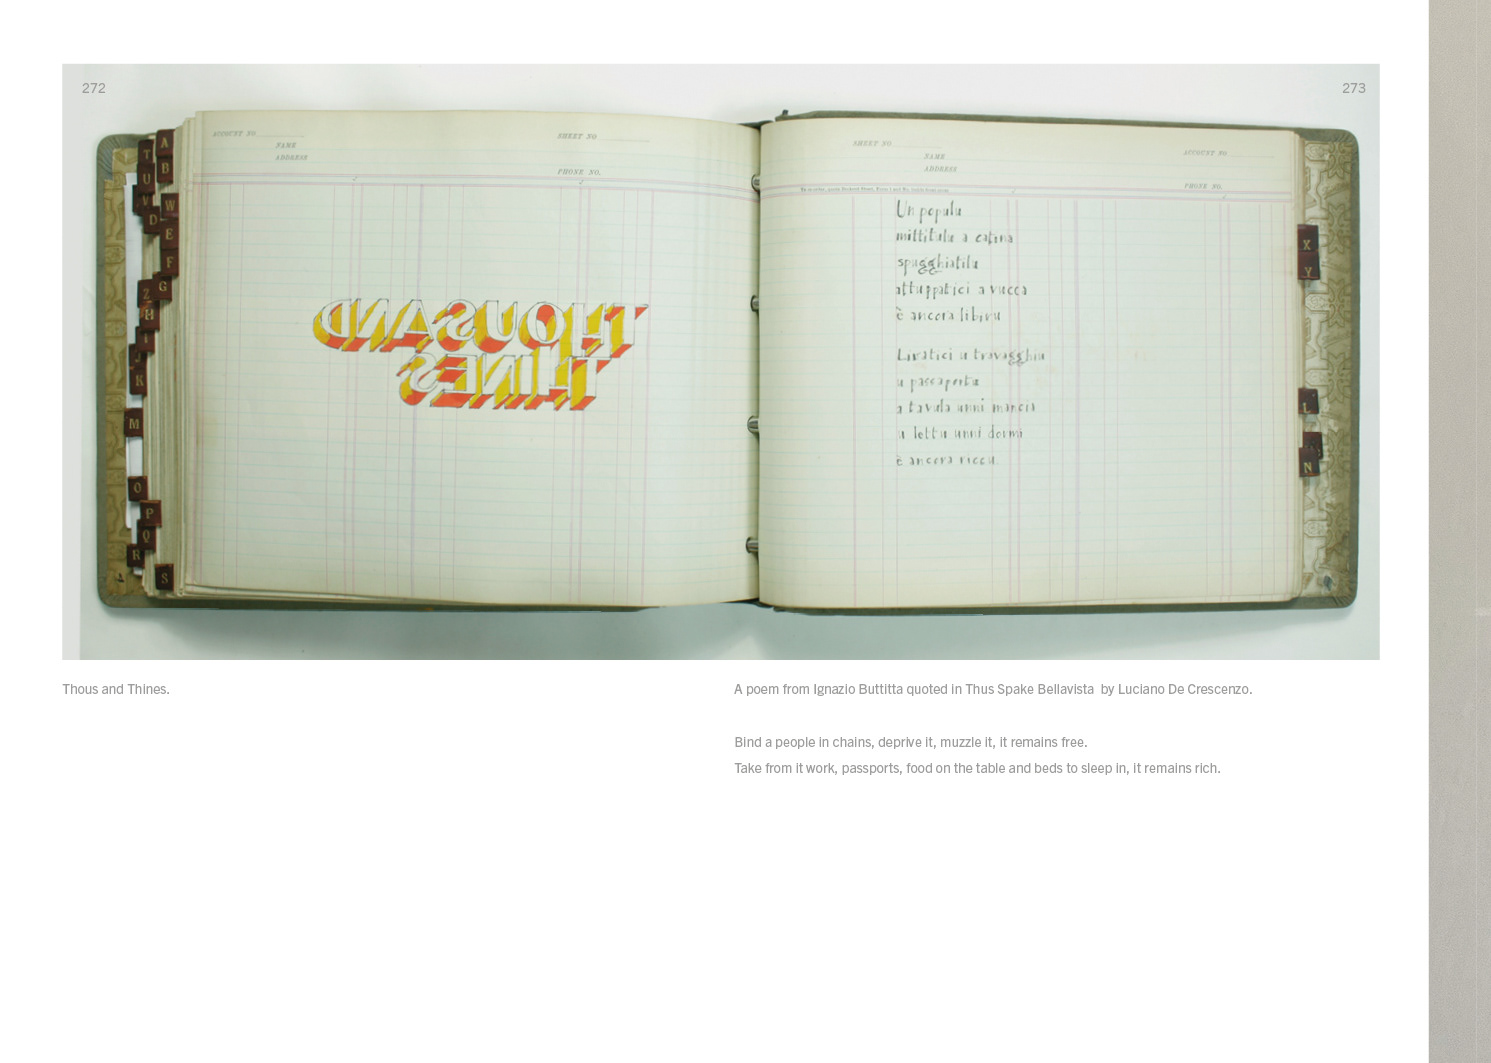 272
273
ACCOUNT NO
SHEET NO
NAME
ADDRESS
PHONE NO.
THOUSAND
THINES
SHEET NO
ACCOUNT NO.
NAME
ADDRESS
PHONE NO.
Un populu
mittitulu a catina
spugghiatilu
attuppatici a vucca
è ancora libiru
Livatici u travagghiu
u passaportu
a tavula unni mancia
u lettu unni dormi
è ancora riccu.
A
T
B
U
V
W
D
E
F
G
Z
H
I
J
K
M
O
P
Q
R
S
X
Y
L
N
Thous and Thines.
A poem from Ignazio Buttitta quoted in Thus Spake Bellavista by Luciano De Crescenzo.
Bind a people in chains, deprive it, muzzle it, it remains free.
Take from it work, passports, food on the table and beds to sleep in, it remains rich.